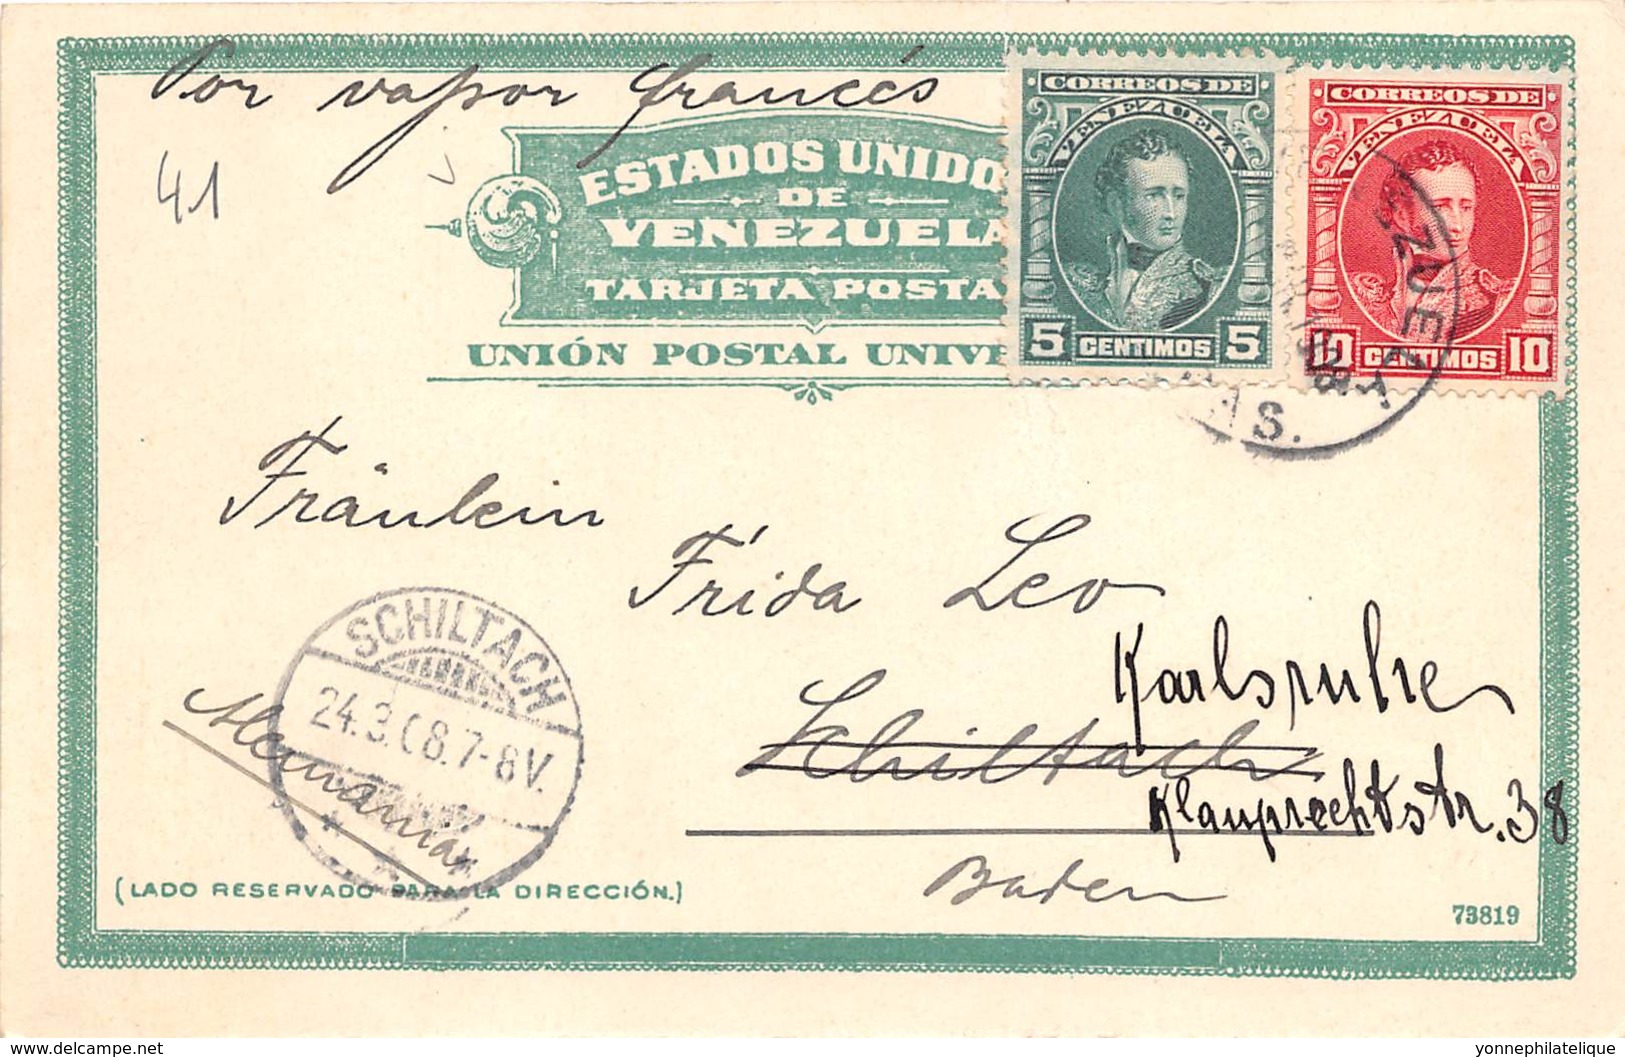 Por vapor francés
41
ESTADOS UNIDO
DE
VENEZUELA
TARJETA POSTA
UNIÓN POSTAL UNIVE
CORREOS DE
VENEZUELA
5 CENTIMOS 5
CORREOS DE
VENEZUELA
10 CENTIMOS 10
Fräulein
Frida Leo
Karlsruhe
Schiltach
Klauprechtstr. 38
Baden
SCHILTACH
24.3.08.7-8V.
Alemania
(LADO RESERVADO PARA LA DIRECCIÓN.)
73819
delcampe.net
yonnephilatelique